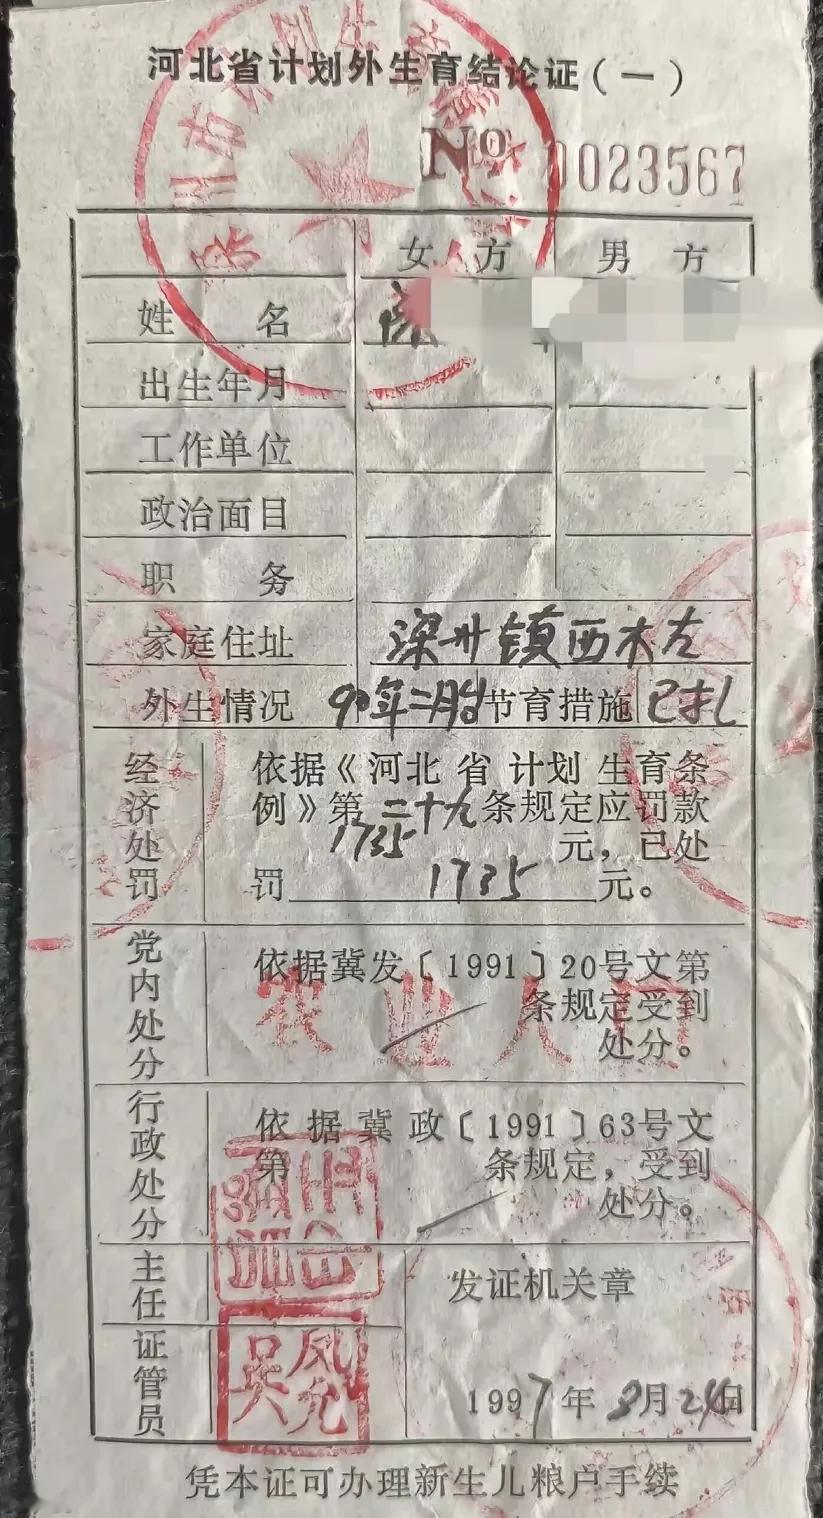 河北省计划外生育结论证(一)
No 0023567
女方 男方
姓名
出生年月
工作单位
政治面目
职务
家庭住址 深州镇西木左
外生情况 90年二胎 节育措施 已扎
经济处罚
依据《河北省计划生育条
例》第二十九条规定应罚款
1735元,已处
罚1735元。
党内处分
依据冀发〔1991〕20号文第
条规定受到
处分。
农业人口
行政处分
依据冀政〔1991〕63号文
第 条规定,受到
处分。
主任
发证机关章
证管员
吴凤允
1997年8月24日
凭本证可办理新生儿粮户手续